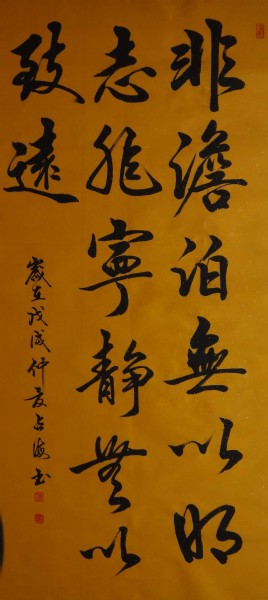 非澹泊無以明
志非寧靜無以
致遠
歲在戊戌仲夏占海書